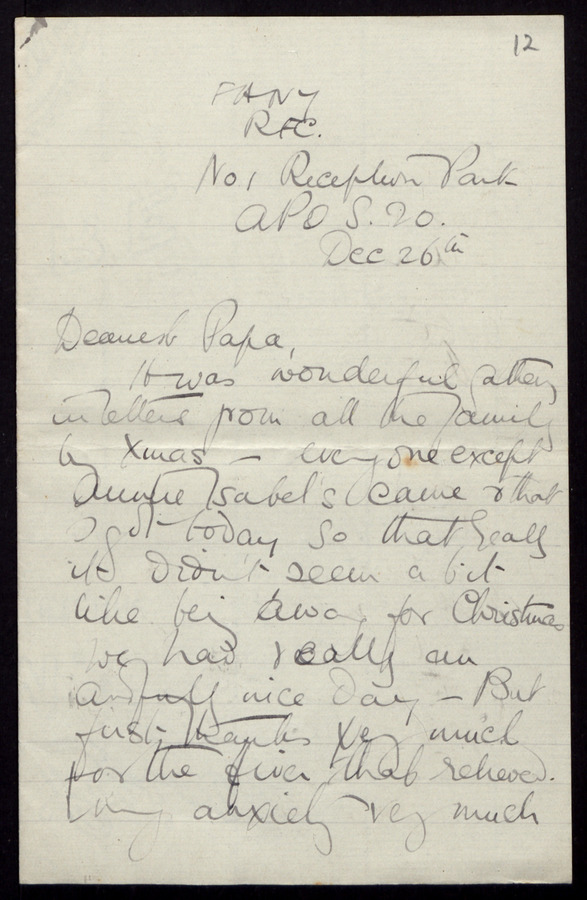 12
FANY
RFC.
No 1 Reception Park
APO S. 20.
Dec 26th
Dearest Papa,
It was wonderful
letters from all the family
by Xmas – everyone except
Auntie Isabel's came & that
I got today so that really
it didn't seem a bit
like being away for Christmas
We had really an
awfully nice day – But
first, thanks very much
for the fiver that relieved
my anxiety very much